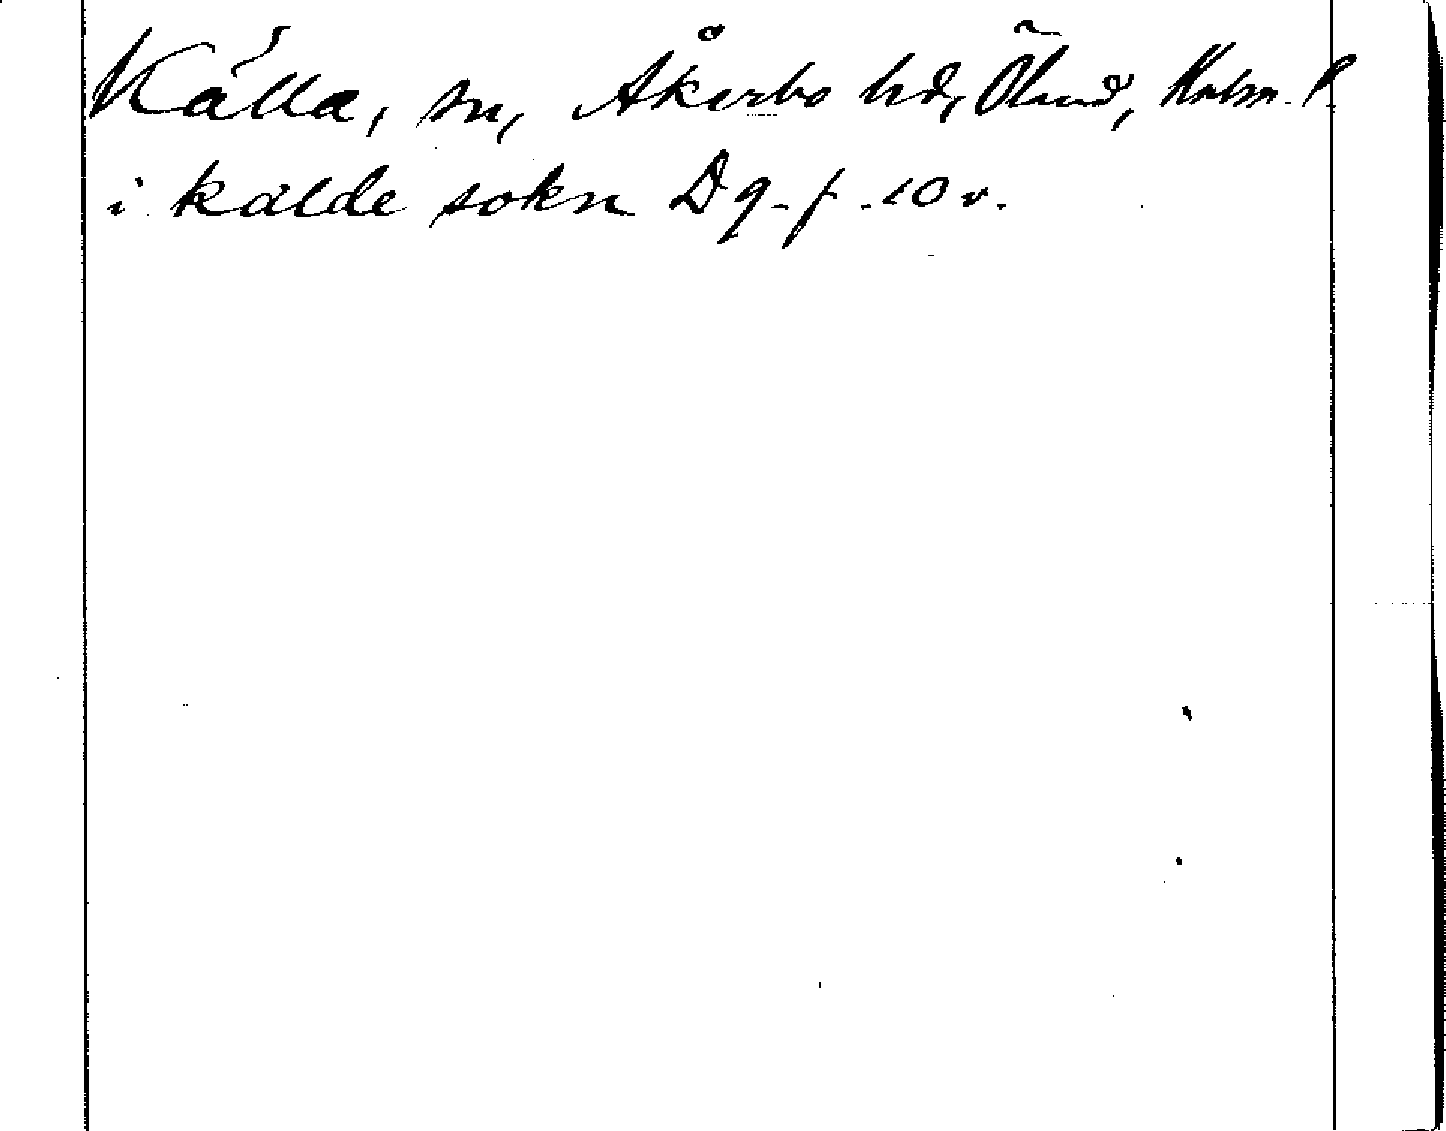 Källa, sn, Åkerbo hd, Öland, Kalm. l.
i kalde sokn D 9. f. 10 v.